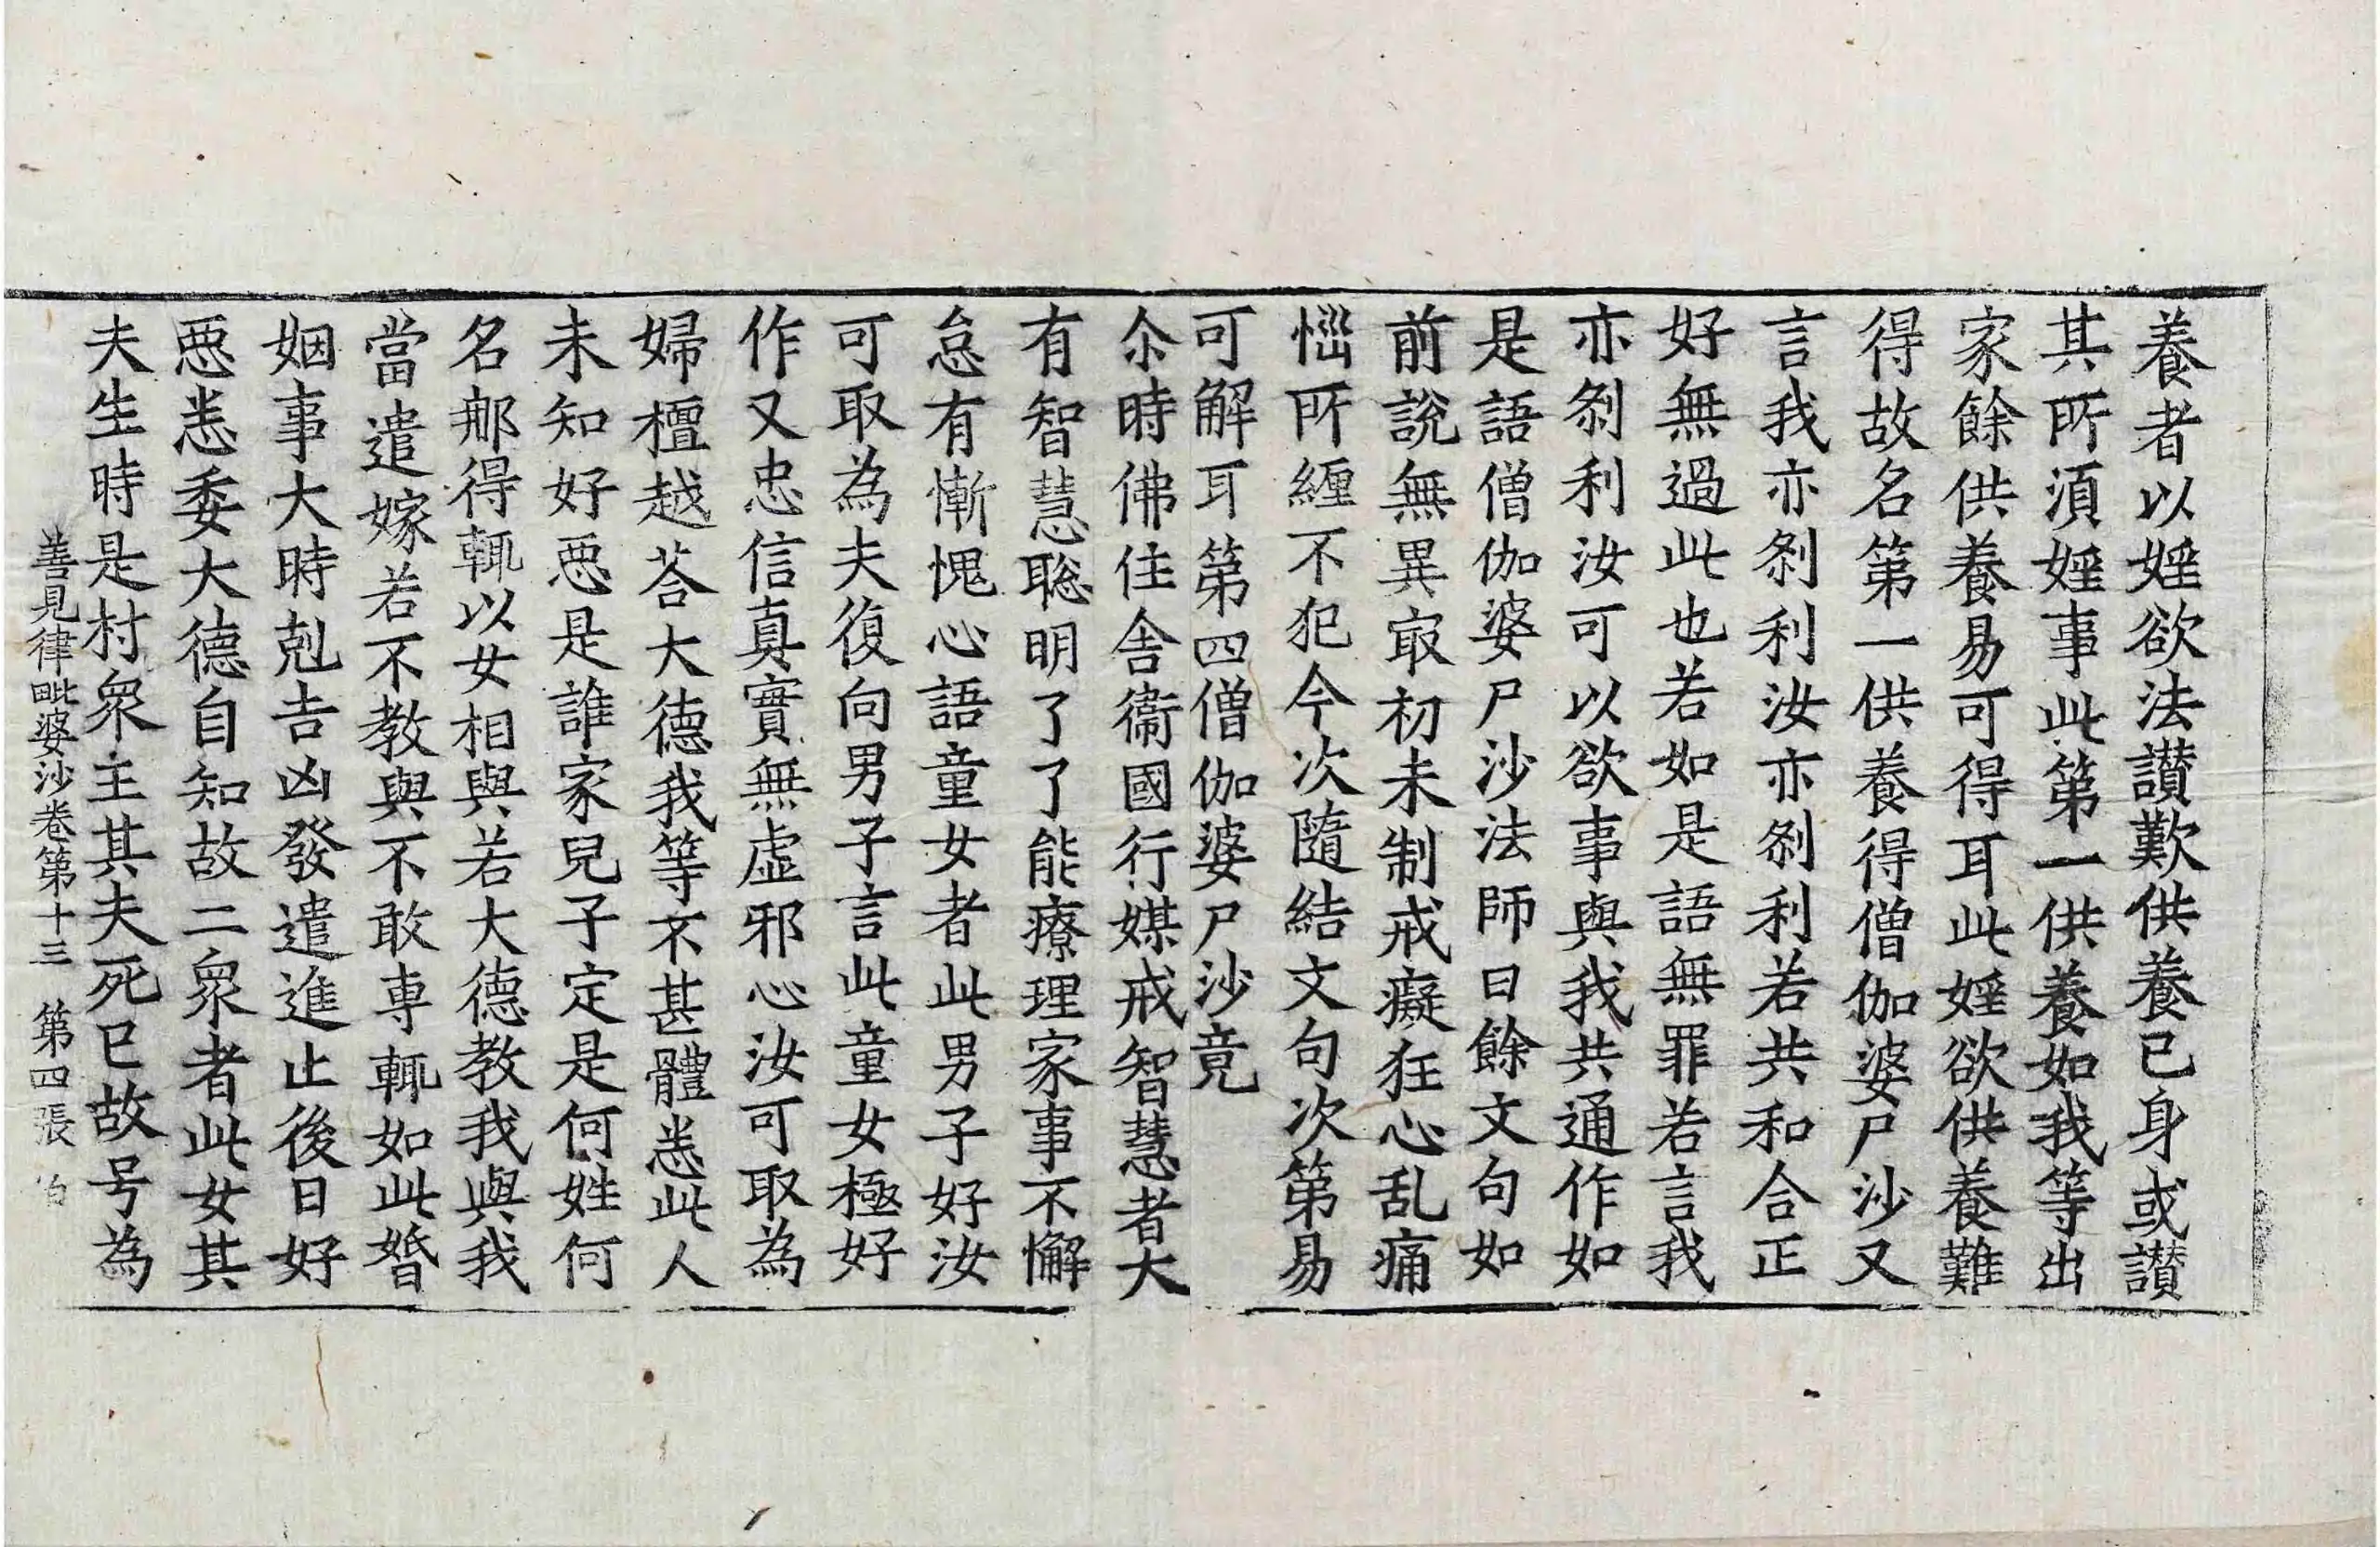 養者以婬欲法讃歎供養已身或讃
其所湏婬事此第一供養如我等出
家餘供養易可得耳此婬欲供養難
得故名第一供養得僧伽婆尸沙又
言我亦剎利汝亦剎利若共和合正
好無過此也若如是語無罪若言我
亦剎利汝可以欲事與我共通作如
是語僧伽婆尸沙法師曰餘文句如
前說無異㝡初未制戒癡狂心乱痛
惱所纏不犯今次隨結文句次第易
可解耳第四僧伽婆尸沙竟
尒時佛住舍衞國行媒戒智慧者大
有智慧聡明了了能療理家事不懈
怠有慚愧心語童女者此男子好汝
可取為夫復向男子言此童女極好
作又忠信真實無虛邪心汝可取為
婦檀越荅大德我等不甚體悉此人
未知好惡是誰家兒子定是何姓何
名那得輒以女相與若大德教我與我
當遣嫁若不教與不敢専輒如此婚
姻事大時剋吉凶發遣進止後日好
惡悉委大德自知故二衆者此女其
夫生時是村衆主其夫死已故号為
善見律毗婆沙卷第十三　第四張